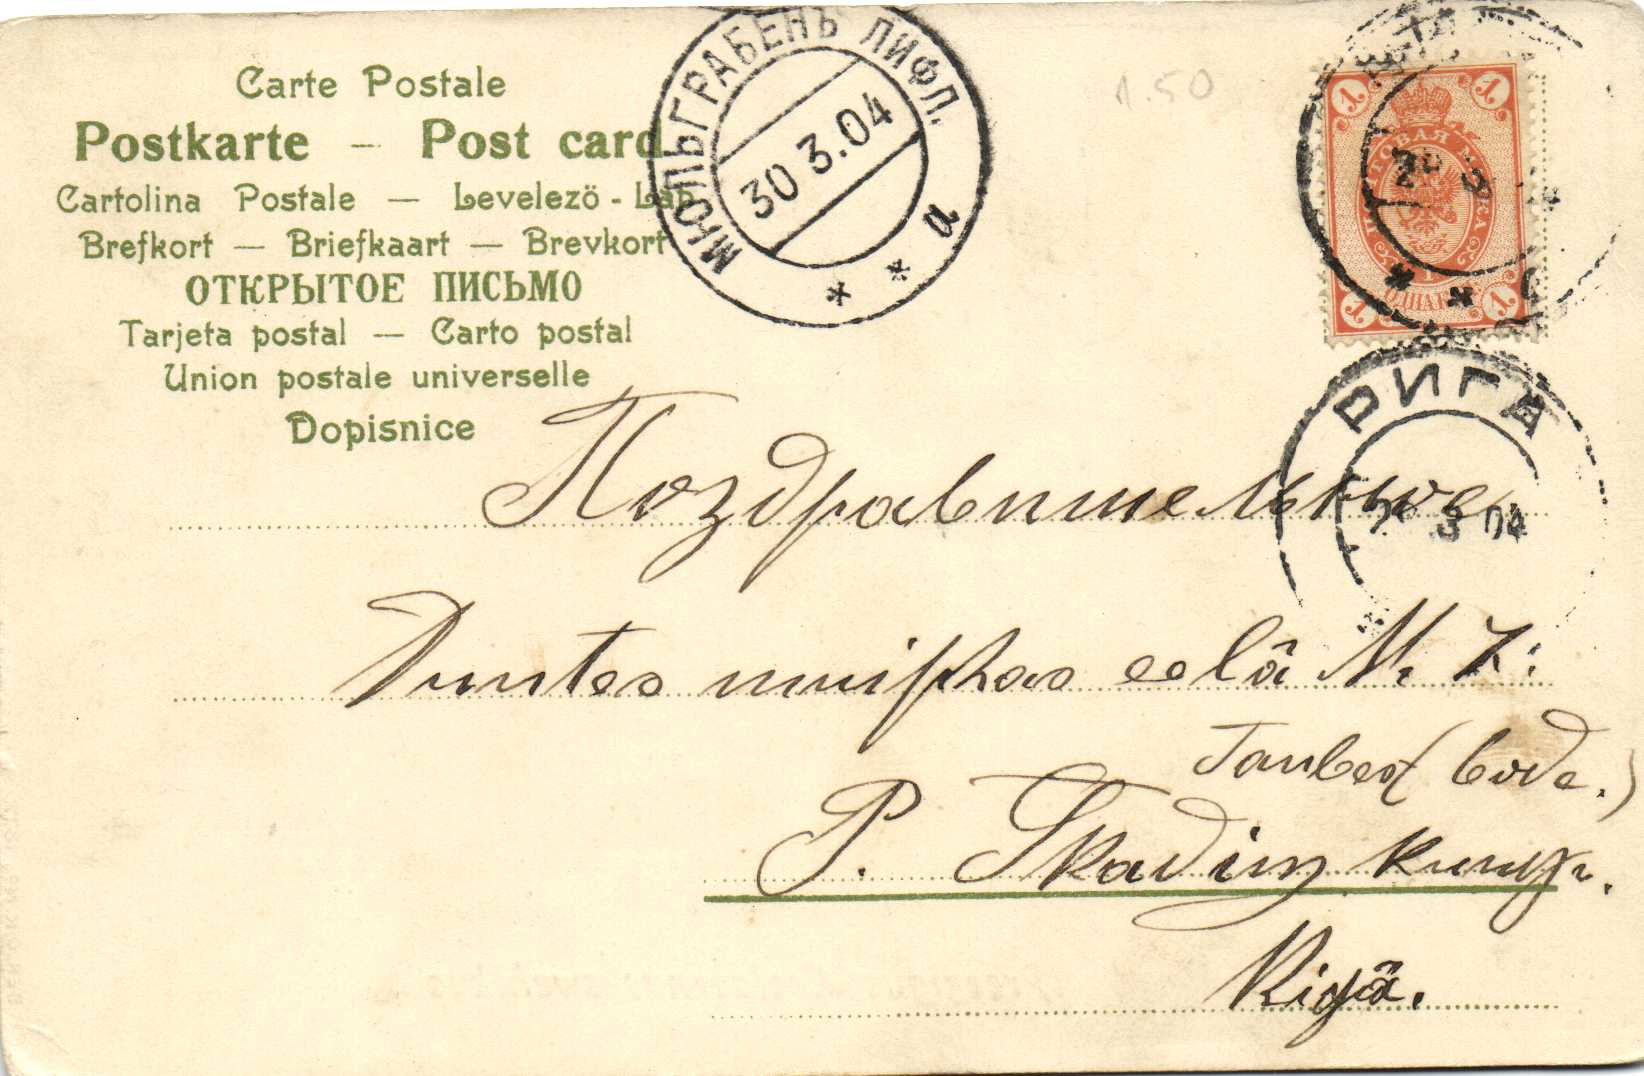 Carte Postale
Postkarte — Post card
Cartolina Postale — Levelező - Lap
Brefkort — Briefkaart — Brevkort
ОТКРЫТОЕ ПИСЬМО
Tarjeta postal — Carto postal
Union postale universelle
Dopisnice
МЮЛЬГРАБЕНЪ ЛИФЛ.
30 3.04
а
1.50
1 1
ПОЧТОВАЯ МАРКА
1 1
РИГА
3 04
Поздравительное
Duntes muischas eelâ
Tauber (bode.)
P. Skadiņ kungr.
Rigâ.